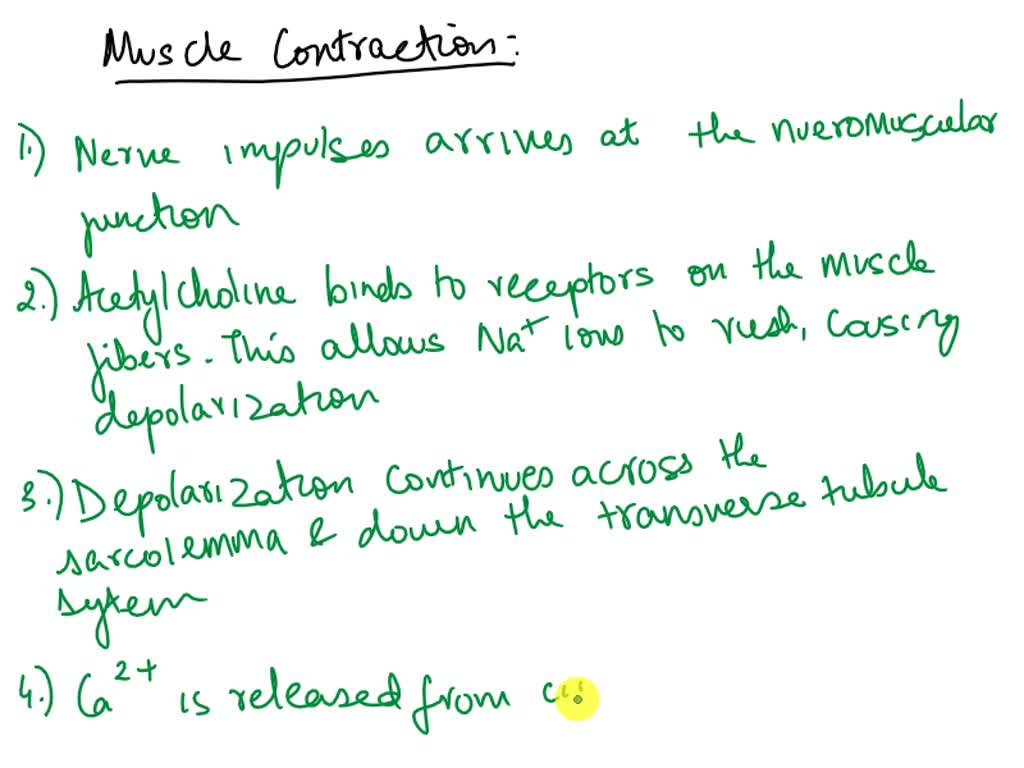 Muscle Contraction:
1.) Nerve impulses arrives at the nueromuscular
junction
2.) Acetylcholine binds to receptors on the muscle
fibers. This allows Na+ ions to rush, causing
depolarization
3.) Depolarization continues across the
sarcolemma & down the transverse tubule
sytem
4.) Ca2+ is released from